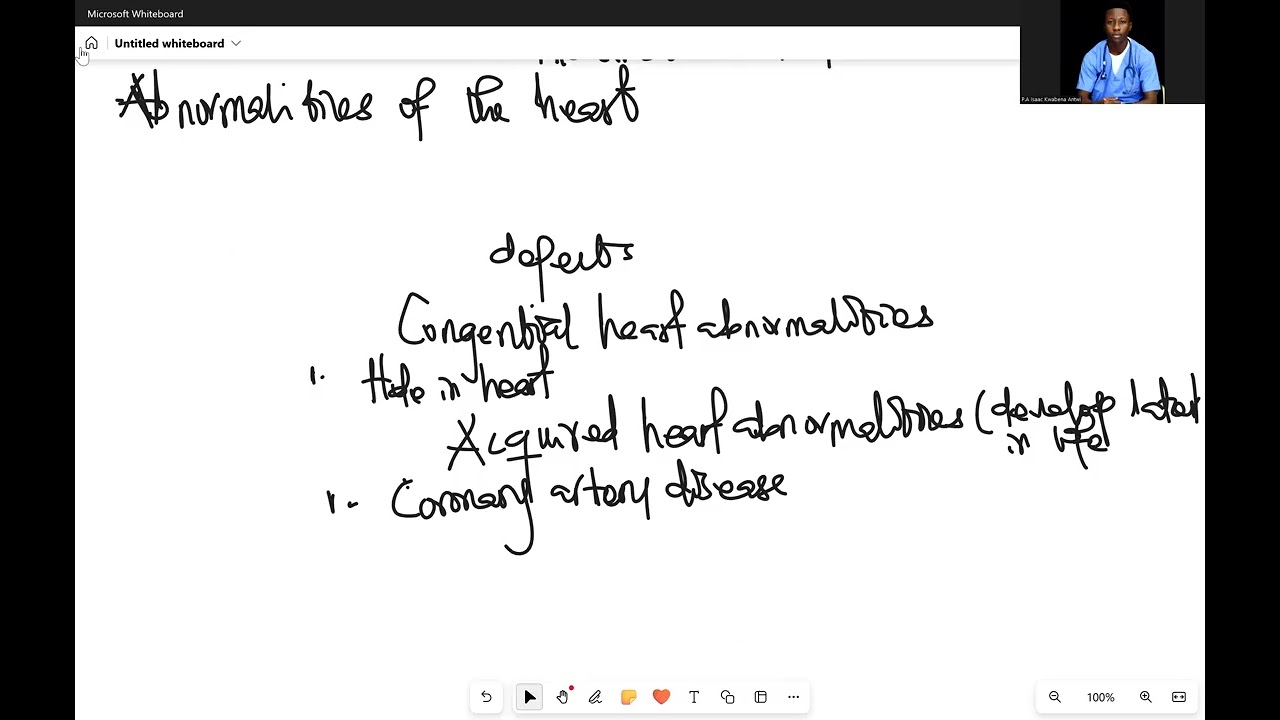 Microsoft Whiteboard
Untitled whiteboard
P.A Isaac Kwabena Antwi
Abnormalities of the heart
defects
Congential heart abnormalities
1. Hole in heart
Acquired heart abnormalities (develop later
in life
1. Coronary artery disease
T
100%